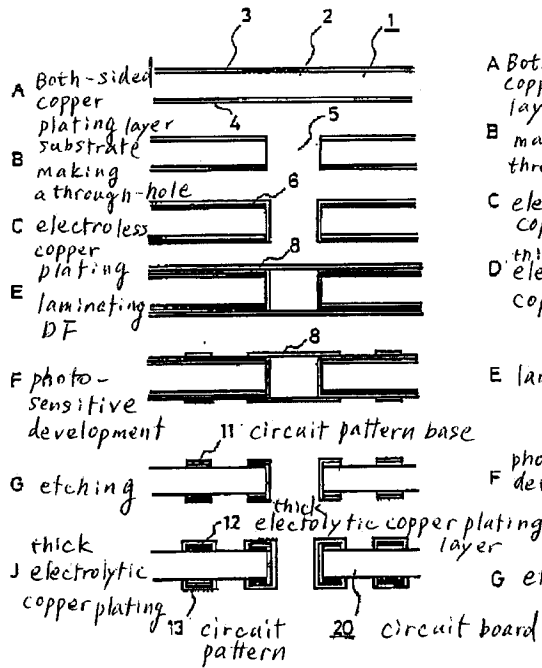 3 2 1
A Both-sided
copper
plating layer
substrate
4
5
B making
a through-hole
6
C electroless
copper
plating
8
E laminating
DF
8
F photo-
sensitive
development
11 circuit pattern base
G etching
12 thick
electolytic copper plating
layer
thick
J electrolytic
copper plating
13 circuit
pattern
20 circuit board
A Bot
copp
lay
B ma
thr
C ele
cop
thi
D ele
cop
E lan
pho
F de
G e